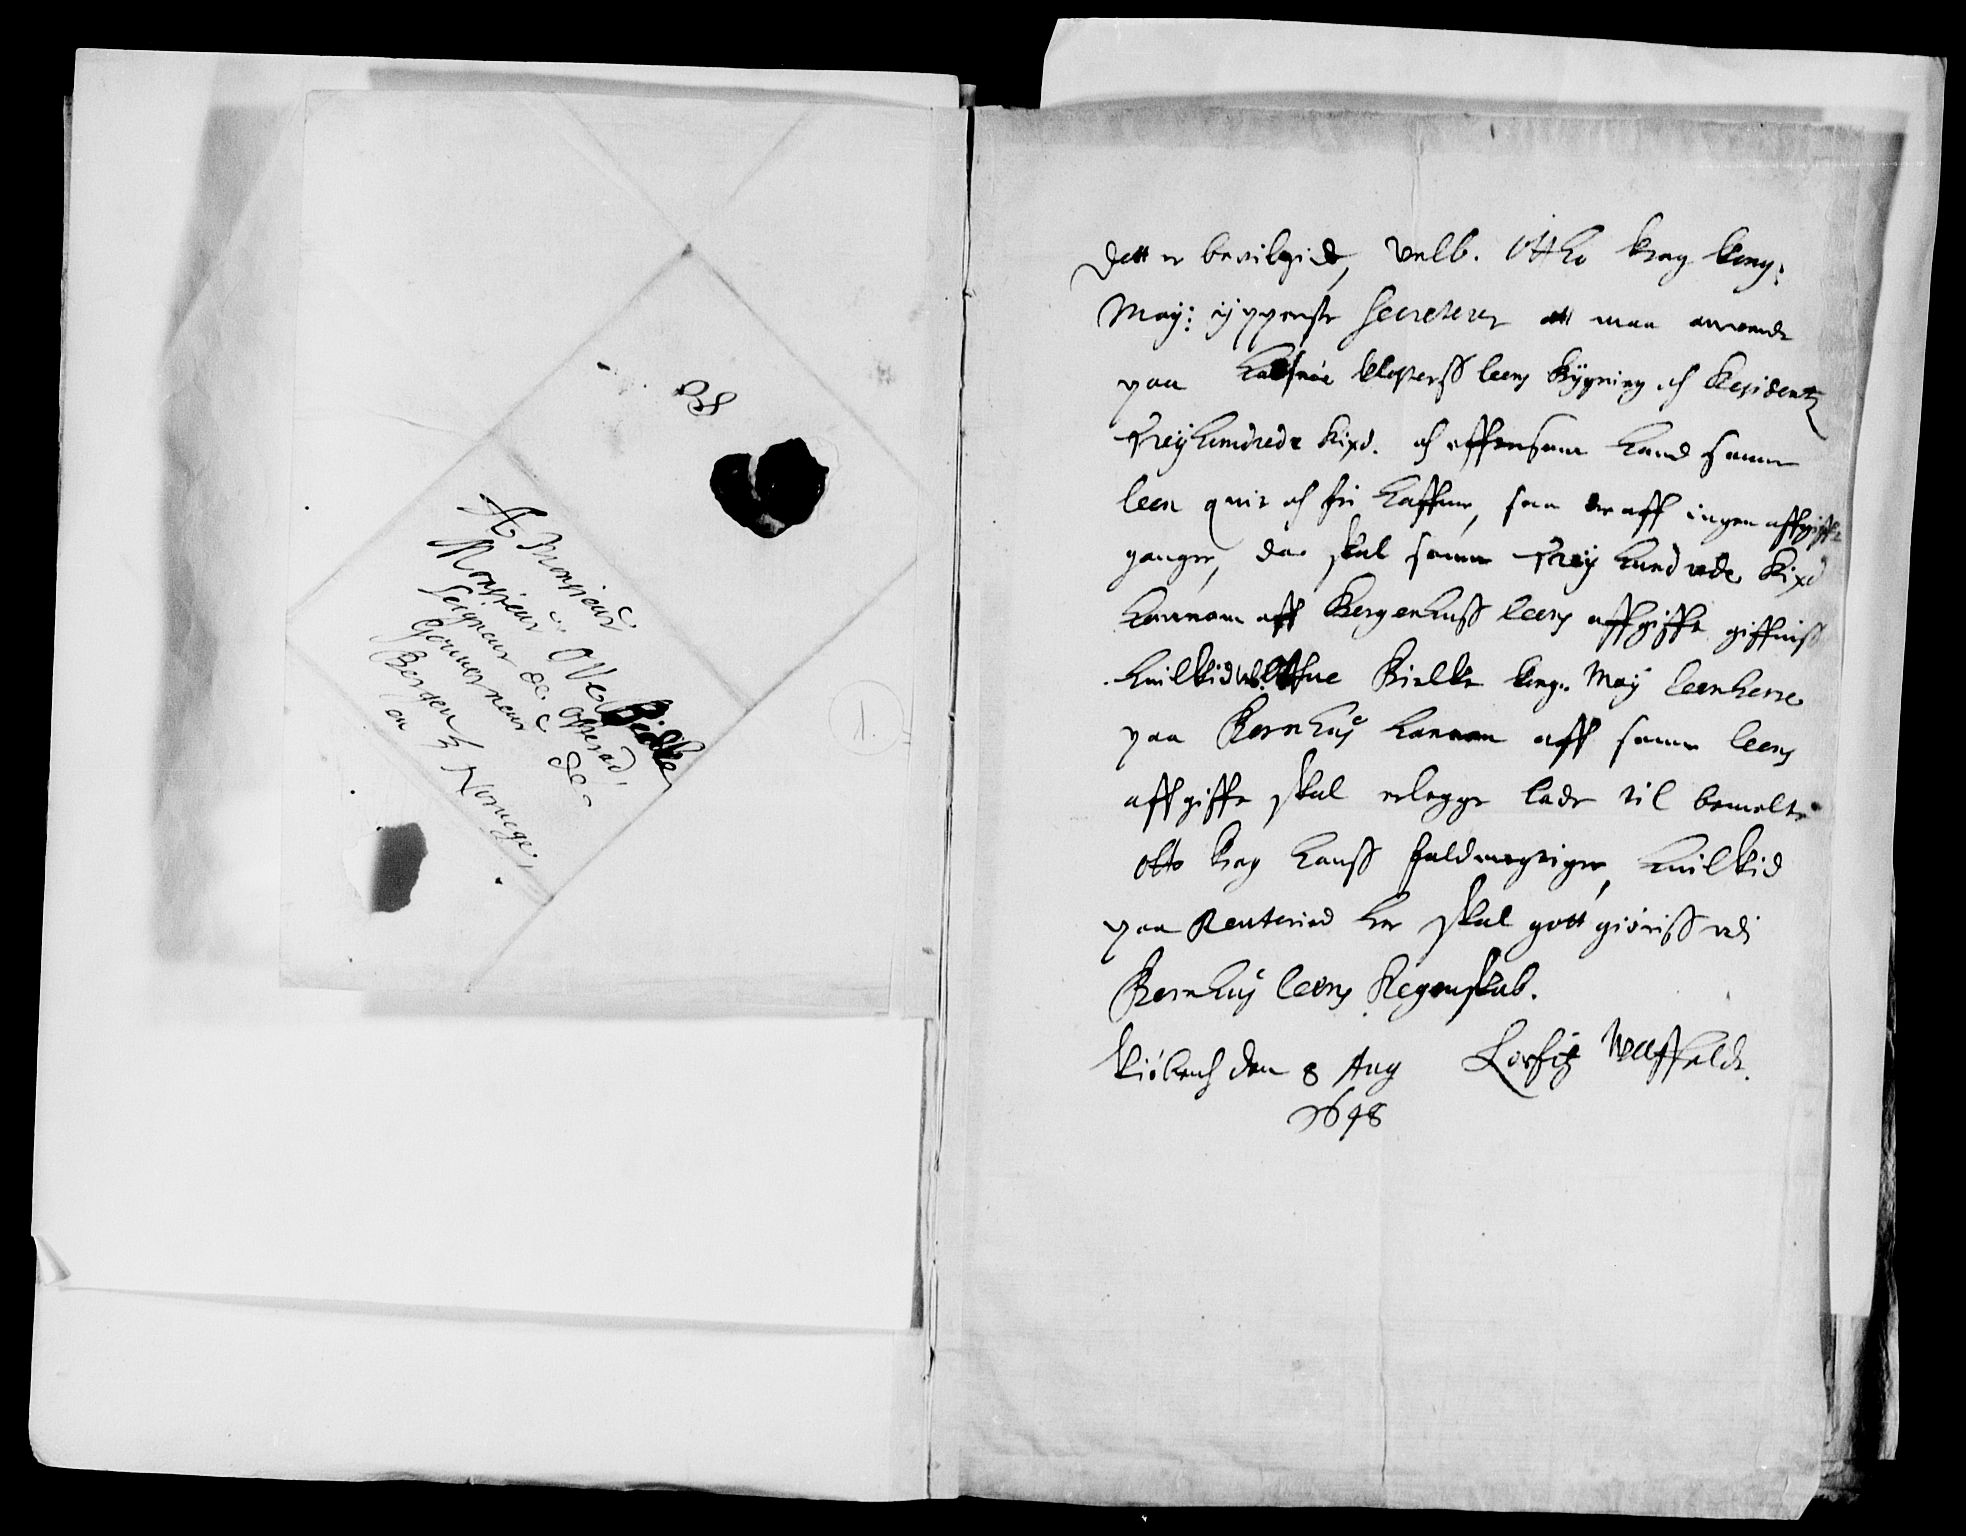 A Monsieur
Monsieur OVe Bielke
Seigneur de Osterad,
Gouverneur de
Bergen
en Noruege,
1.
Dett er bevilgidt, Velb. Otto Krag Kong:
May: ypperste Secreterer att maa anvende
paa Halsnöe Klosterss leens Bÿgning och Residentz
Treÿ hundrede Rixd. och effter som hand samme
leen quit och fri haffuer, saa der aff ingen affgifft
ganger, da skal samme Treÿ hundrede Rixd
hannom aff Bergenhuss leens affgifft giffuiss
huilkid velb. Ofue Bielke kong: May leenherre
paa Bernhus hannom aff samme leens
affgifft skal erlegge lade til bemelte
Otto Krag hanss fuldmegtiger, huilkid
paa Renteried her skal gott giöriss udi
Bernhus leens Regenskab.
Kiöbenh den 8 Aug
1648
Corfitz Ulffeldt.